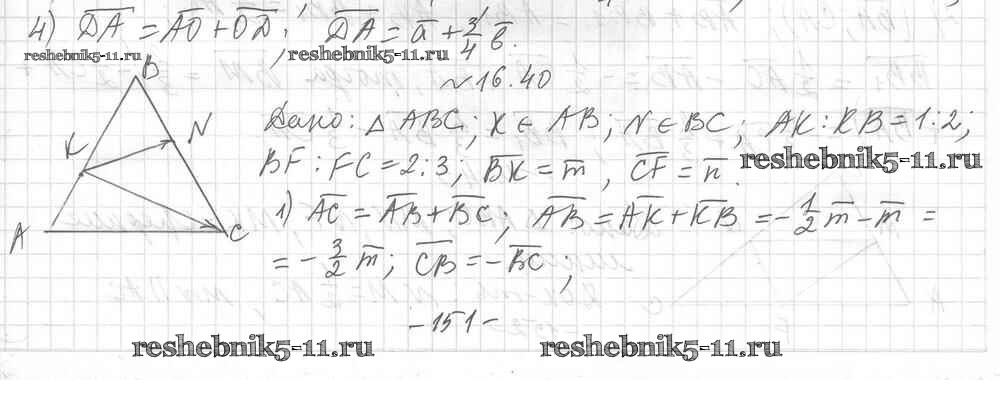 4) D̅A̅ = A̅O̅ + O̅D̅; D̅A̅ = a̅ + 3/4 b̅.
reshebnik5-11.ru reshebnik5-11.ru
№16.40
B
K N
A C
Дано: △ABC; K ∈ AB; N ∈ BC; AK : KB = 1:2;
BF : FC = 2:3; B̅K̅ = m̅, C̅F̅ = n̅.
reshebnik5-11.ru
1) A̅C̅ = A̅B̅ + B̅C̅; A̅B̅ = A̅K̅ + K̅B̅ = -1/2 m̅ - m̅ =
= -3/2 m̅; C̅B̅ = -B̅C̅;
-151-
reshebnik5-11.ru reshebnik5-11.ru